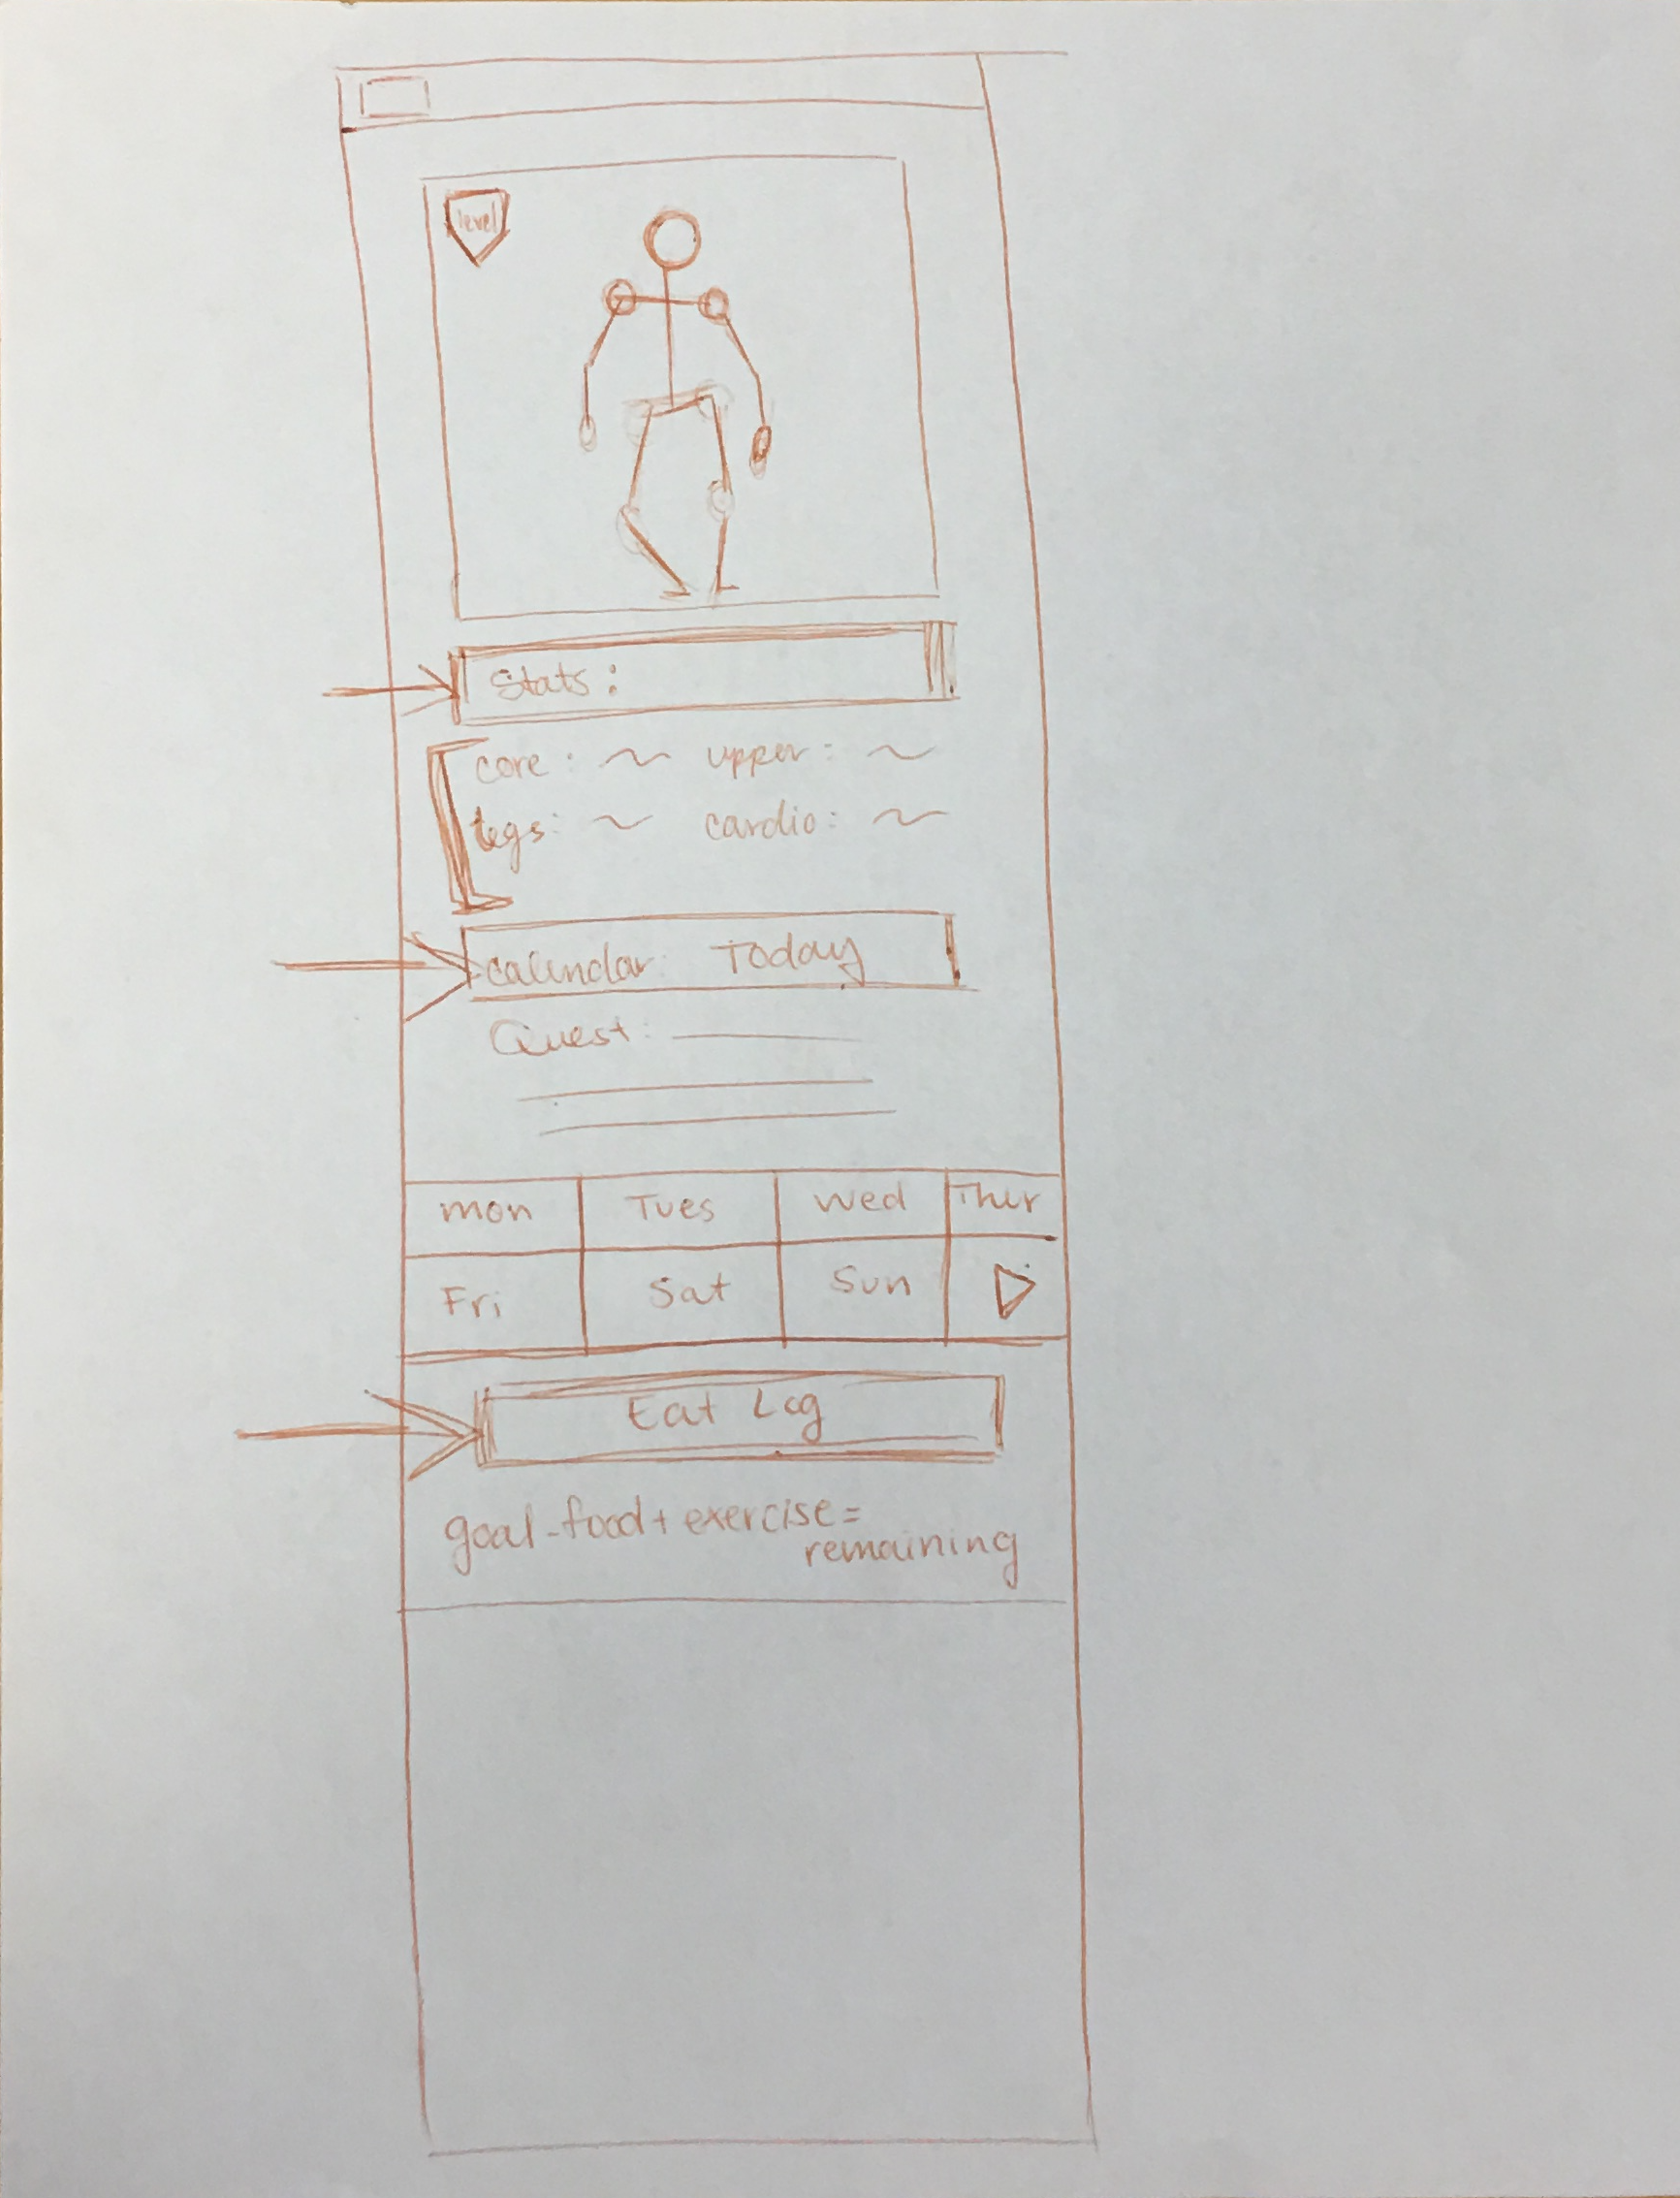 level
Stats:
core: ~ upper: ~
legs: ~ cardio: ~
calendar: Today
Quest:
mon Tues wed Thur
Fri Sat Sun
Eat Log
goal - food + exercise =
remaining